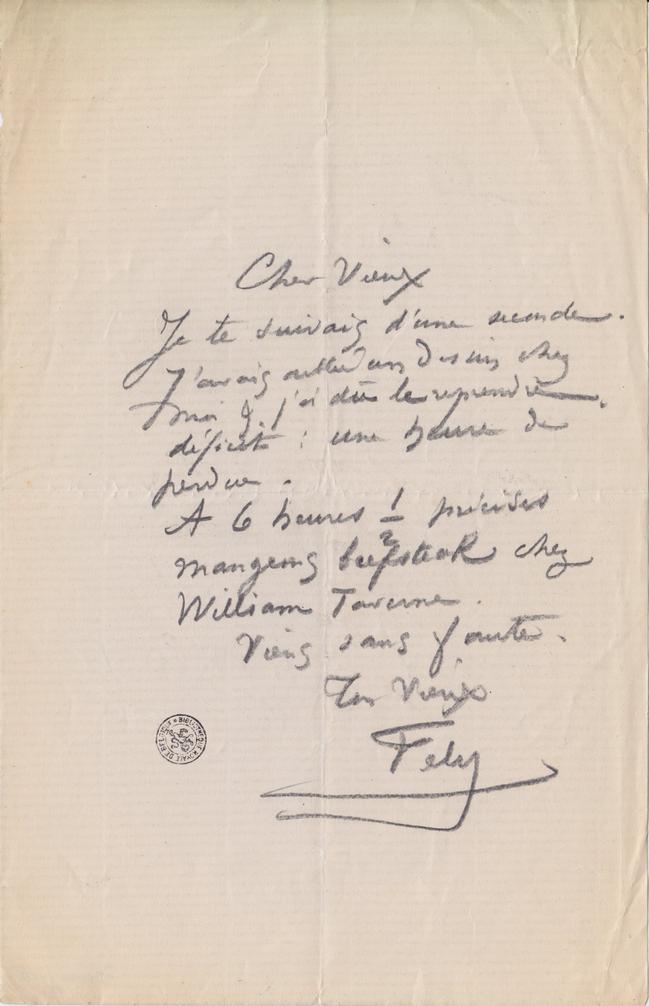 Cher Vieux
Je te suivais d'une seconde.
J'avais oublié un dessin chez
moi & j'ai dû le reprendre.
déficit : une heure de
perdue.
A 6 heures 1/2 précises
mangeons beefsteak chez
William Taverne.
Viens sans faute.
Ton Vieux
Fely
BIBLIOTHEQUE ROYALE DE BELGIQUE